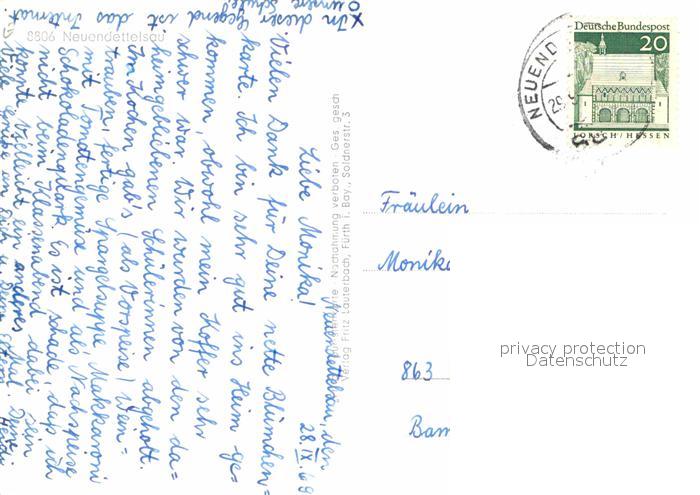 X In dieser Gegend ist das Internat.
O unsere Schule!
8806 Neuendettelsau
Neuendettelsau, den
28.IX.69
Liebe Monika!
Vielen Dank für Deine nette Blümchen=
karte. Ich bin sehr gut ins Heim ge=
kommen, obwohl mein Koffer sehr
schwer war. Wir wurden von den da=
heimgebliebenen Schülerinnen abgeholt.
Im Kochen gab's (als Vorspeise) Wein=
trauben, fertige Spargelsuppe, Makkaroni
mit Tomatengemüse und als Nachspeise
Schokoladenquark. Es ist schade, daß ich
nicht beim Klassenabend dabei sein
konnte. Vielleicht ein anderes Mal.
Viele Grüße an Dich u. Deine Eltern. Deine
Verlag Fritz Lauterbach, Fürth i. Bay., Soldnerstr. 3
Nachahmung verboten Ges. gesch
Deutsche Bundespost
20
LORSCH/HESSEN
NEUEND
Fräulein
Monika
863
privacy protection
Datenschutz